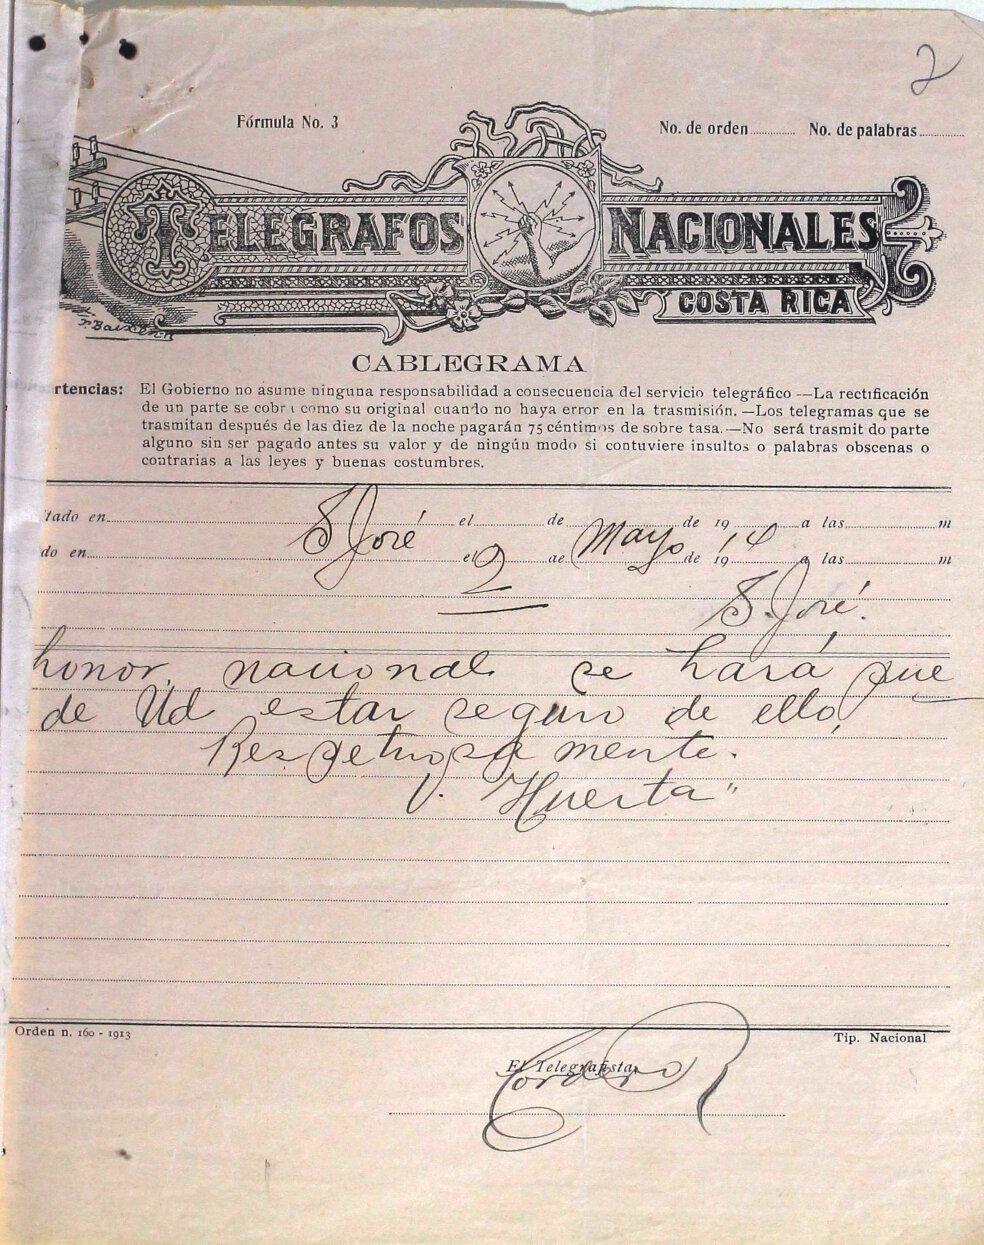 2
Fórmula No. 3
No. de orden No. de palabras
TELEGRAFOS NACIONALES
COSTA RICA
CABLEGRAMA
rtencias: El Gobierno no asume ninguna responsabilidad a consecuencia del servicio telegráfico —La rectificación
de un parte se cobr como su original cuando no haya error en la trasmisión. —Los telegramas que se
trasmitan después de las diez de la noche pagarán 75 céntimos de sobre tasa.—No será trasmit do parte
alguno sin ser pagado antes su valor y de ningún modo si contuviere insultos o palabras obscenas o
contrarias a las leyes y buenas costumbres.
itado en S José el de de 19 a las m
do en el 2 de Mayo de 19 14 a las m
S. José.
honor nacional se hará que
de Ud estar seguro de ello,
Respetuosamente.
V. Huerta"
Orden n. 160 - 1913
Tip. Nacional
El Telegrafista,
Cordero R